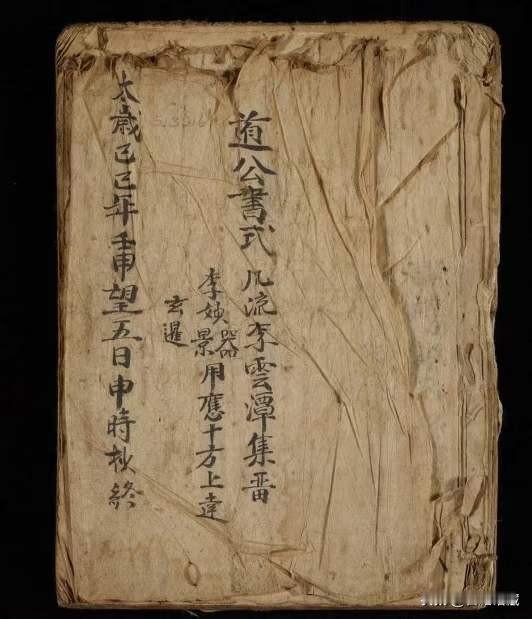 道公書式 凡流李雲潭集畨
李妙景器用應十方上達
玄暹
太歲己巳年壬申望五日申時抄終